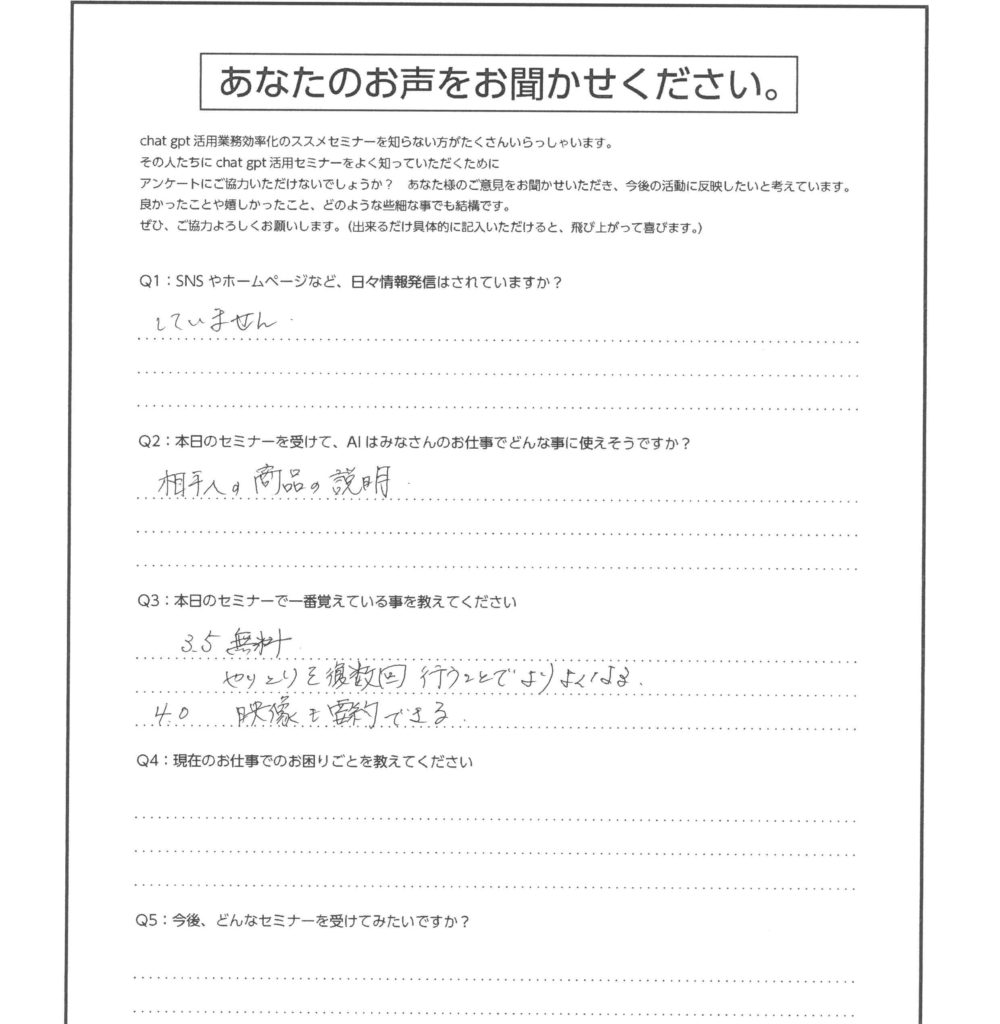 あなたのお声をお聞かせください。
chat gpt 活用業務効率化のススメセミナーを知らない方がたくさんいらっしゃいます。
その人たちに chat gpt 活用セミナーをよく知っていただくために
アンケートにご協力いただけないでしょうか？　あなた様のご意見をお聞かせいただき、今後の活動に反映したいと考えています。
良かったことや嬉しかったこと、どのような些細な事でも結構です。
ぜひ、ご協力よろしくお願いします。（出来るだけ具体的に記入いただけると、飛び上がって喜びます。）
Q1：SNS やホームページなど、日々情報発信はされていますか？
していません.
Q2：本日のセミナーを受けて、AI はみなさんのお仕事でどんな事に使えそうですか？
相手への商品の説明.
Q3：本日のセミナーで一番覚えている事を教えてください
3.5 無料
やりとりを複数回 行うことで よりよくなる.
4.0 映像も要約できる.
Q4：現在のお仕事でのお困りごとを教えてください
Q5：今後、どんなセミナーを受けてみたいですか？